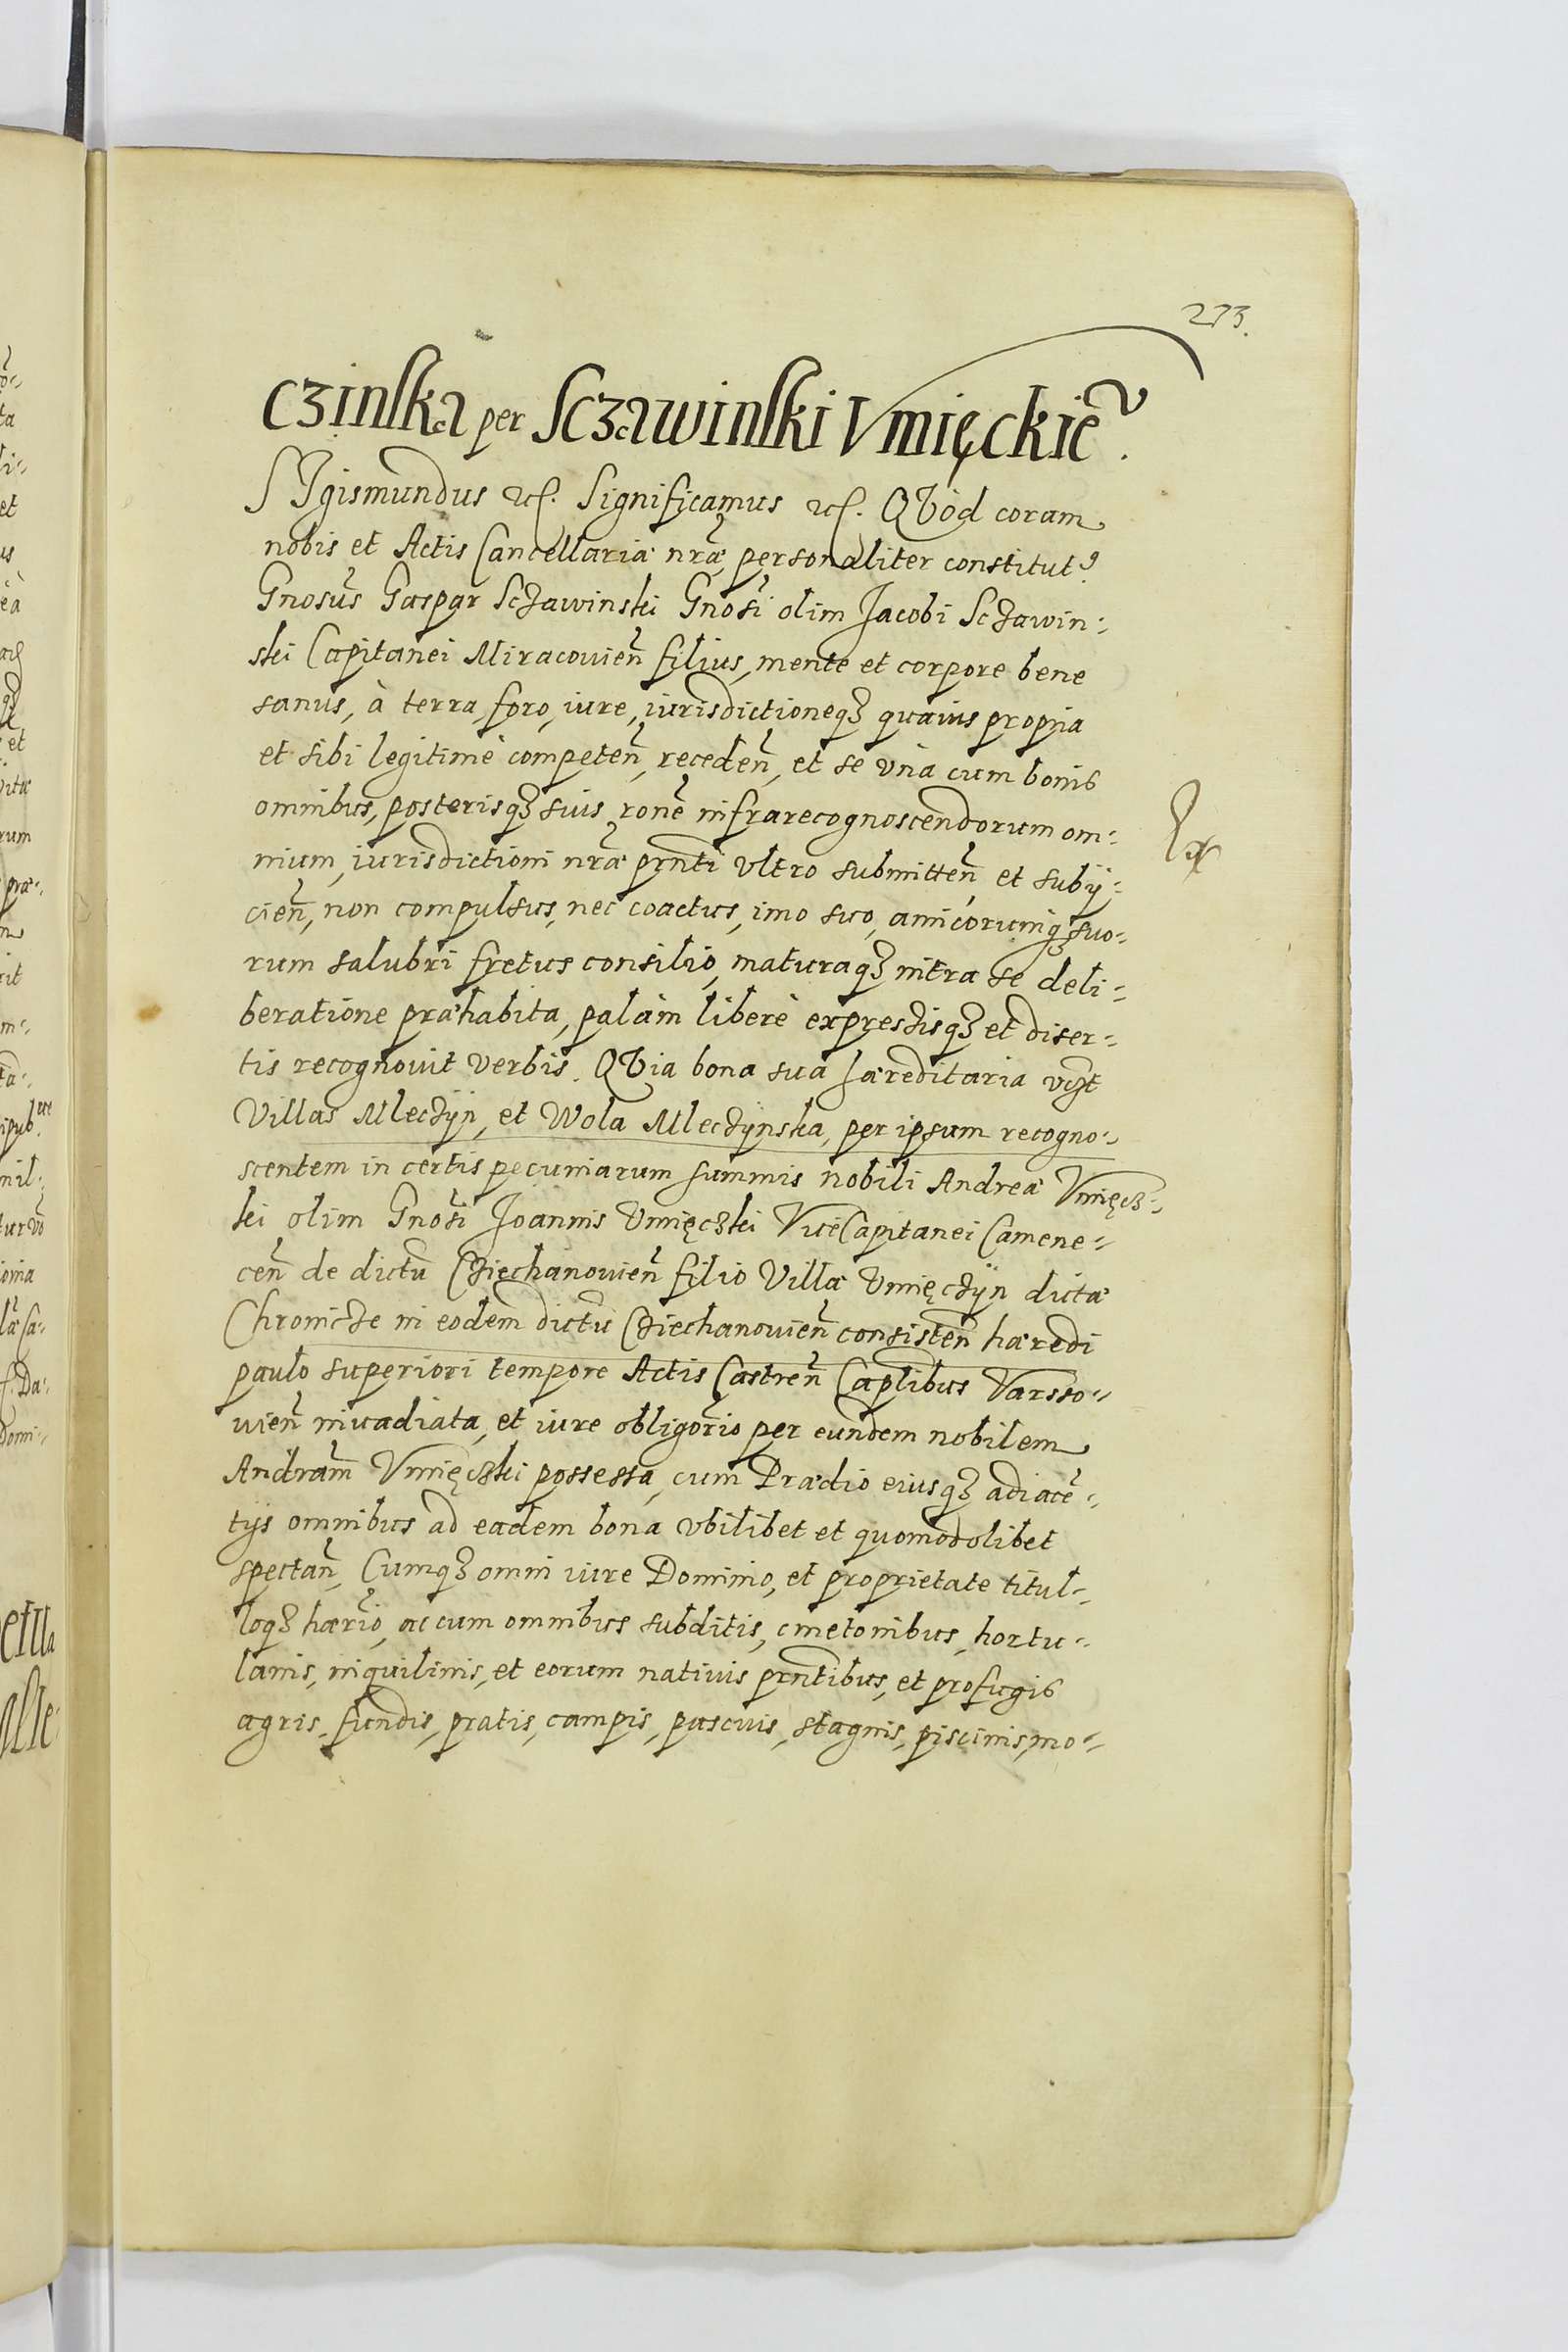 273.
czinska per Sczawinski Vmięckiē.
SIgismundus etc. Significamus etc. QVòd coram
nobis et Actis Cancellariæ nræ personaliter constitut9
Gnosus Gaspar Sczawinski Gnosi olim Jacobi Sczawin:
ski Capitanei Miracouien filius, mente et corpore bene
sanus, à terra, foro, iure, iurisdictioneq3 quauis propria
et sibi legitimè competen, receden, et se vnà cum bonis
omnibus, posterisq3 suis rone infrarecognoscendorum om:
nium, iurisdictioni nræ prnti vltro submitten et subij:
cien, non compulsus, nec coactus, imo suo, amicorumq3 suo:
rum salubri fretus consilio, maturaq3 intra se deli:
beratione præhabita, palàm liberè expressisq3 et diser:
tis recognouit verbis. QVia bona sua hæreditaria vγt
Villas Mleczÿn, et Wola Mleczÿnska, per ipsum recogno:
scentem in certis pecuniarum summis nobili Andreæ Vmięcz:
ki olim Gnosi Joannis Vmięczki ViceCapitanei Camene:
cen de dictu Cziechanouien filio Villæ Vmięczÿn dictæ
Chronicze in eodem dictu Cziechanouien consisten hæredi
paulo superiori tempore Actis Castren Caplibus Varsso:
uien inuadiata, et iure obligorio per eundem nobilem
Andram Vmięczki possessa, cum Prædio eiusq3 adiacē:
tijs omnibus ad eadem bona vbilibet et quomodolibet
spectan, Cumq3 omni iure Dominio, et proprietate titul:
loq3 hærio, ac cum omnibus subditis, cmetonibus, hortu:
lanis, inquilinis, et eorum natiuis prntibus, et profugis
agris, fundis, pratis, campis, pascuis, stagnis, piscinis, mo: